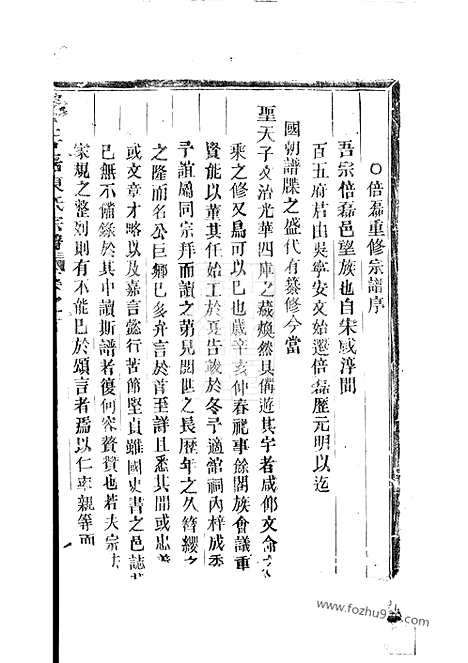 ○倍磊重修宗譜序
吾宗倍磊邑望族也自宋咸淳間
百五府君由吳寧安文始遷倍磊歷元明以迄
國朝譜牒之盛代有纂修今當
聖天子文治光華四庫之藏煥然具備遊其宇者咸仰文命
乘之修又烏可以已也歲辛亥仲春祀事餘闔族會議重
資能以董其任始工於夏告竣於冬予適館祠內梓成丞
予誼屬同宗拜而讀之第見閥世之長歷年之久簪纓之
之隆而名公巨鄉巳多弁言於首至詳且悉其間或忠
或文章才略以及嘉言懿行苦節堅貞雖國史書之邑誌
已無不備錄於其中讀斯譜者復何容贅贊也若夫宗
家規之整則則有不能巳於頌言者焉以仁率親等而
陳氏宗譜
www.fozhu920.com